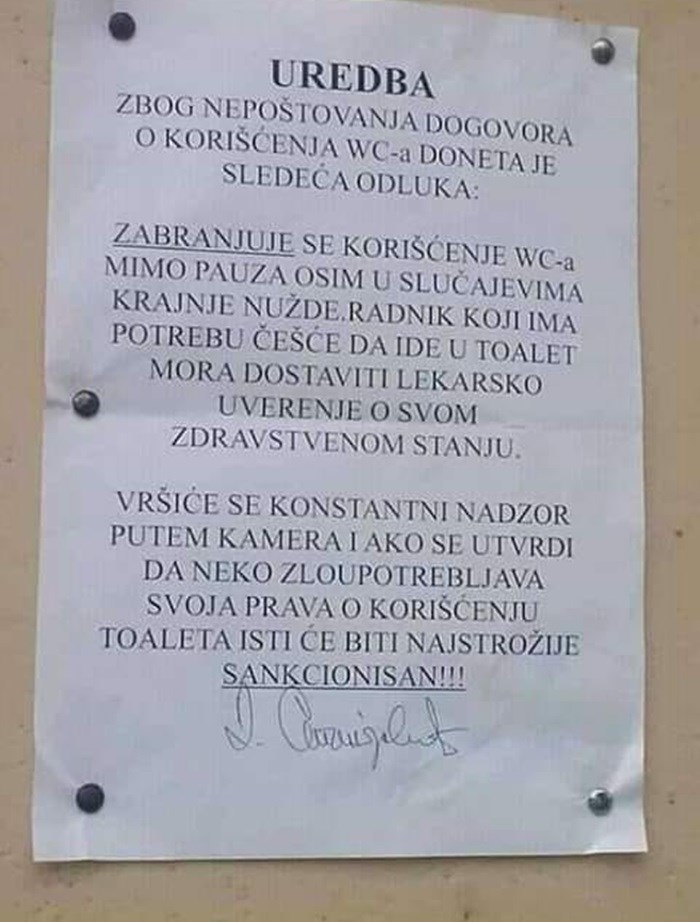 UREDBA
ZBOG NEPOŠTOVANJA DOGOVORA
O KORIŠĆENJA WC-a DONETA JE
SLEDEĆA ODLUKA:
ZABRANJUJE SE KORIŠĆENJE WC-a
MIMO PAUZA OSIM U SLUČAJEVIMA
KRAJNJE NUŽDE.RADNIK KOJI IMA
POTREBU ČEŠĆE DA IDE U TOALET
MORA DOSTAVITI LEKARSKO
UVERENJE O SVOM
ZDRAVSTVENOM STANJU.
VRŠIĆE SE KONSTANTNI NADZOR
PUTEM KAMERA I AKO SE UTVRDI
DA NEKO ZLOUPOTREBLJAVA
SVOJA PRAVA O KORIŠĆENJU
TOALETA ISTI ĆE BITI NAJSTROŽIJE
SANKCIONISAN!!!